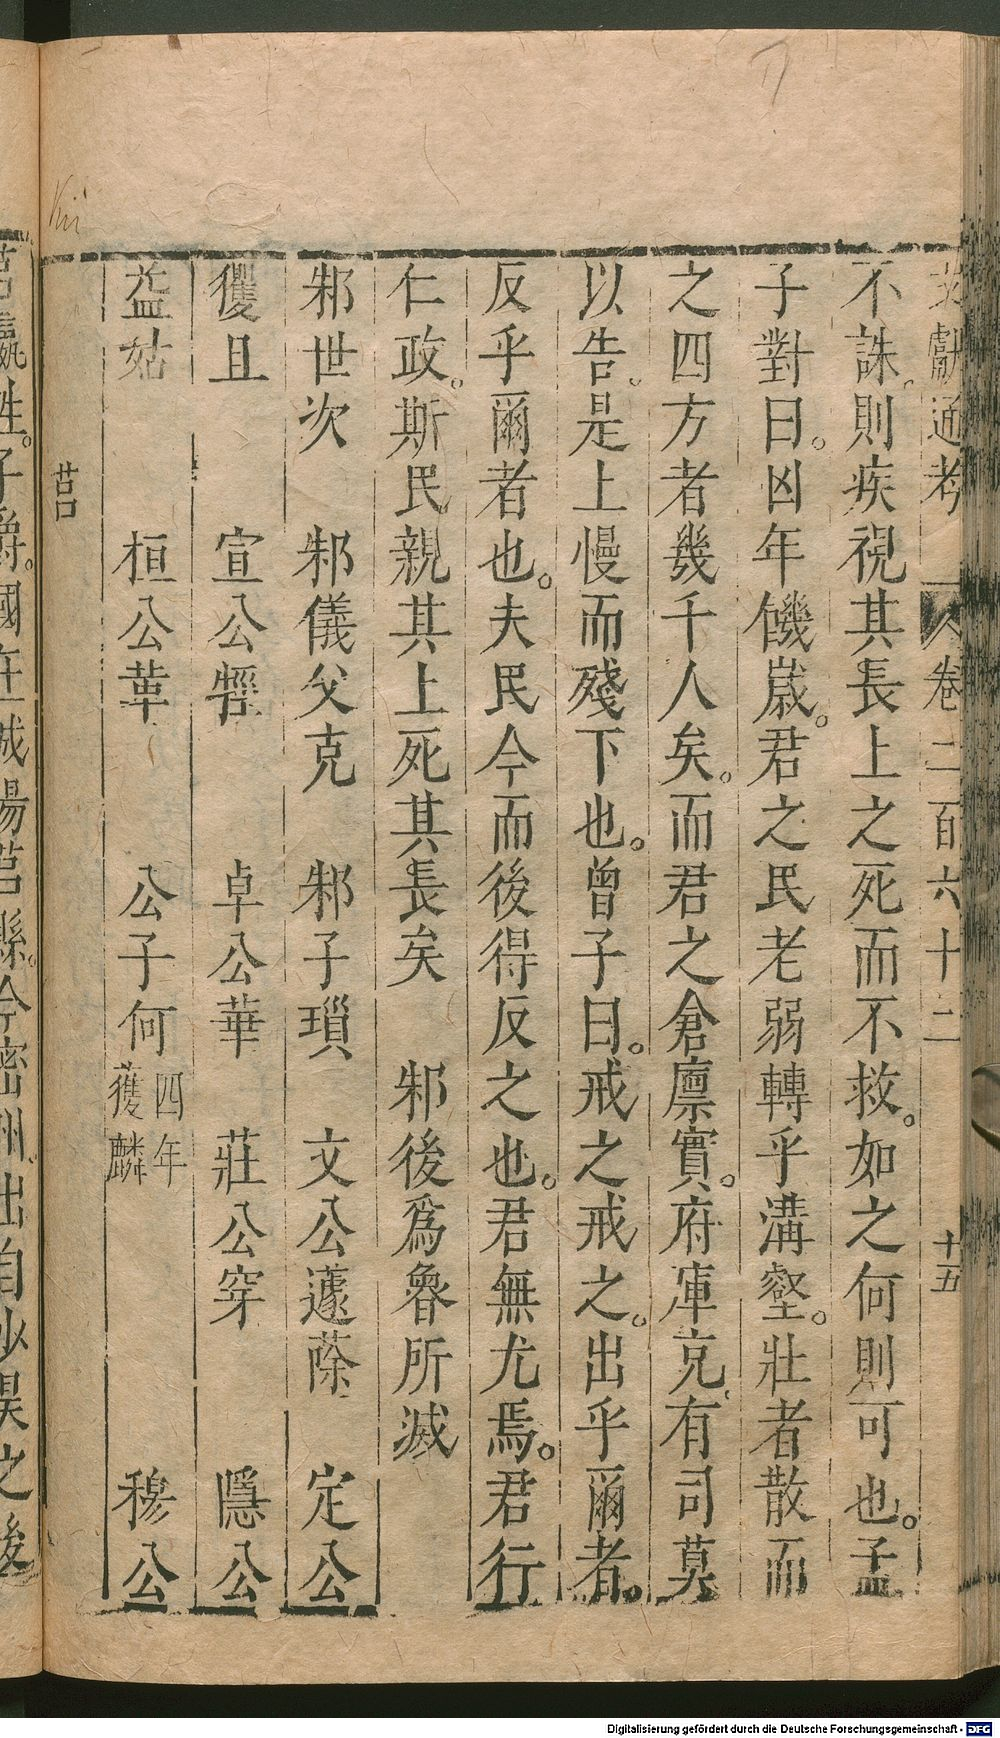 文獻通考 卷二百六十二 十五
不誅。則疾視其長上之死而不救。如之何則可也。孟
子對曰。凶年饑歲。君之民老弱轉乎溝壑。壯者散而
之四方者幾千人矣。而君之倉廩實。府庫充。有司莫
以告。是上慢而殘下也。曾子曰。戒之戒之。出乎爾者。
反乎爾者也。夫民今而後得反之也。君無尤焉。君行
仁政。斯民親其上死其長矣 邾後爲魯所滅
邾世次 邾儀父克 邾子瑣 文公蘧蒢 定公
貜且 宣公牼 卓公華 莊公穿 隱公
益姑 桓公革 公子何 四年獲麟 穆公
莒
莒嬴姓。子爵。國在城陽莒縣。今密州。出自少昊之後
Digitalisierung gefördert durch die Deutsche Forschungsgemeinschaft - DFG